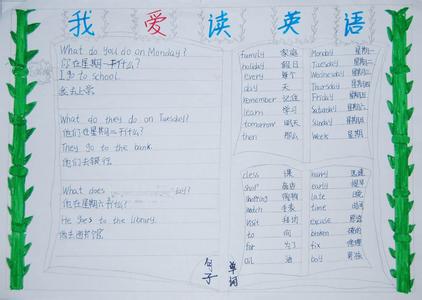 我爱读英语
What do you do on Monday?
你在星期一干什么?
I go to school.
我去上学
What do they do on Tuesday?
他们在星期二干什么?
They go to the bank.
他们去银行
What does
他在星期六干什么?
He goes to the library.
他去图书馆
句子
family 家庭
holiday 假日
every 每个
day 天
remember 记住
learn 学习
tomorrow 明天
then 那么
Monday 星期一
Tuesday 星期二
Wednesday
Thursday
Friday
Saturday
Sunday
Week 星期
class 课
shop 商店
shopping 购物
watch 手表
visit 拜访
to 向
for 为了
oil 油
hurry
early
late
time 时间
excuse 原谅
broken
fix 修理
boy 男孩
单词